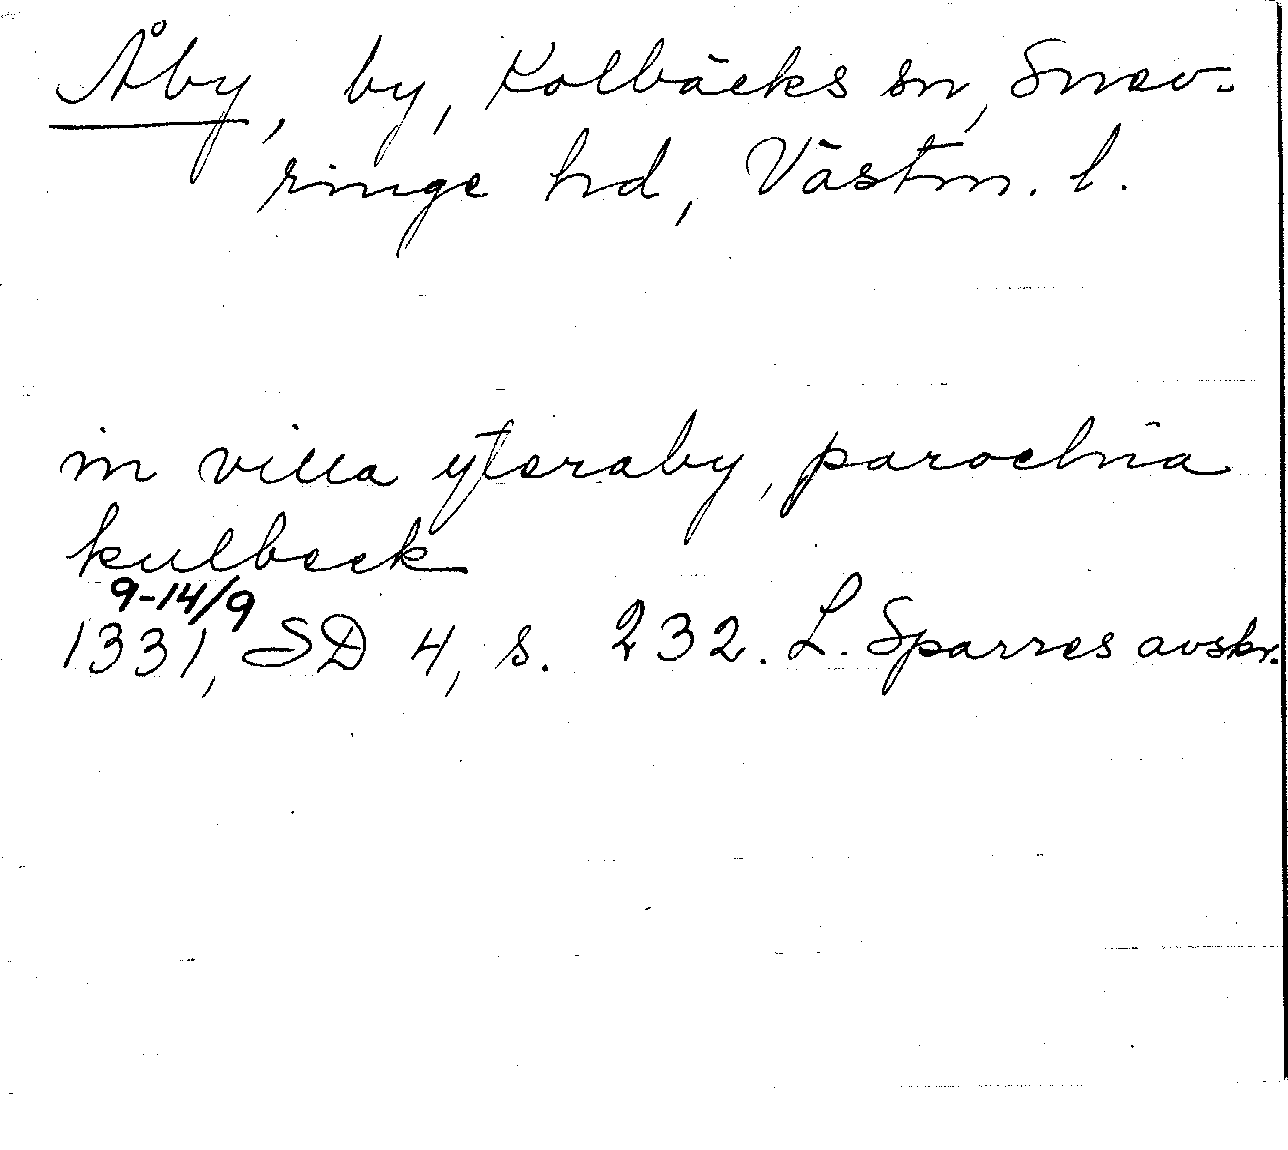 Åby, by, Kolbäcks sn, Snev-
ringe hd, Västm. l.
in villa yteraby, parochia
kulbeck
9-14/9
1331, SD 4, s. 232. L. Sparres avskr.